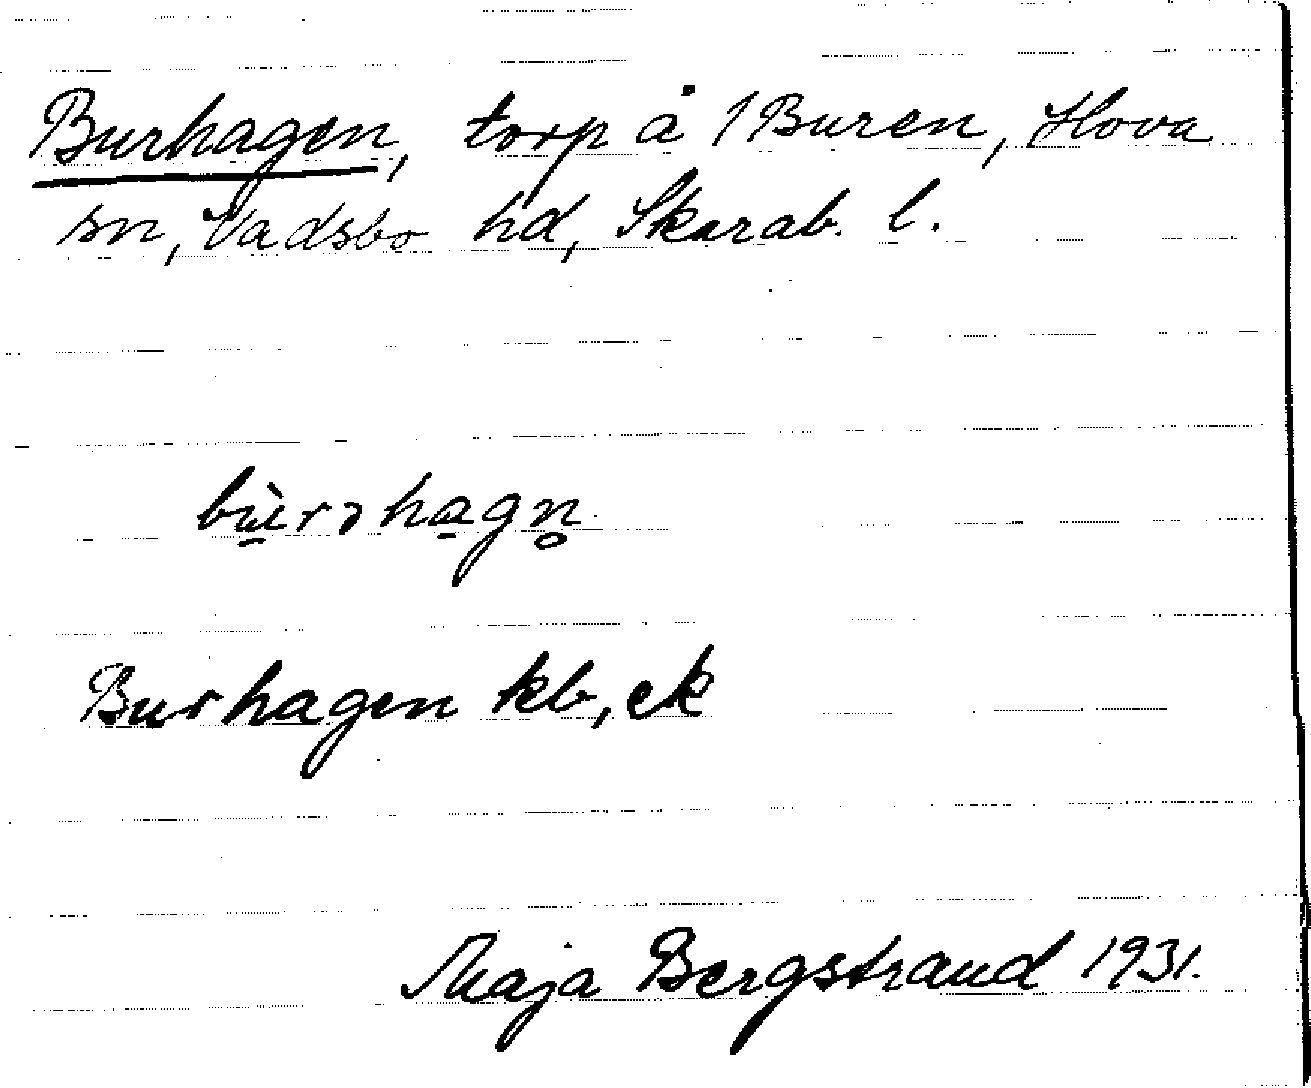 Burhagen, torp å 1 Buren, Hova
sn, Vadsbo hd, Skarab. l.
bù̠rɔha̠gn̥
Burhagen kb, ek
Maja Bergstrand 1931.